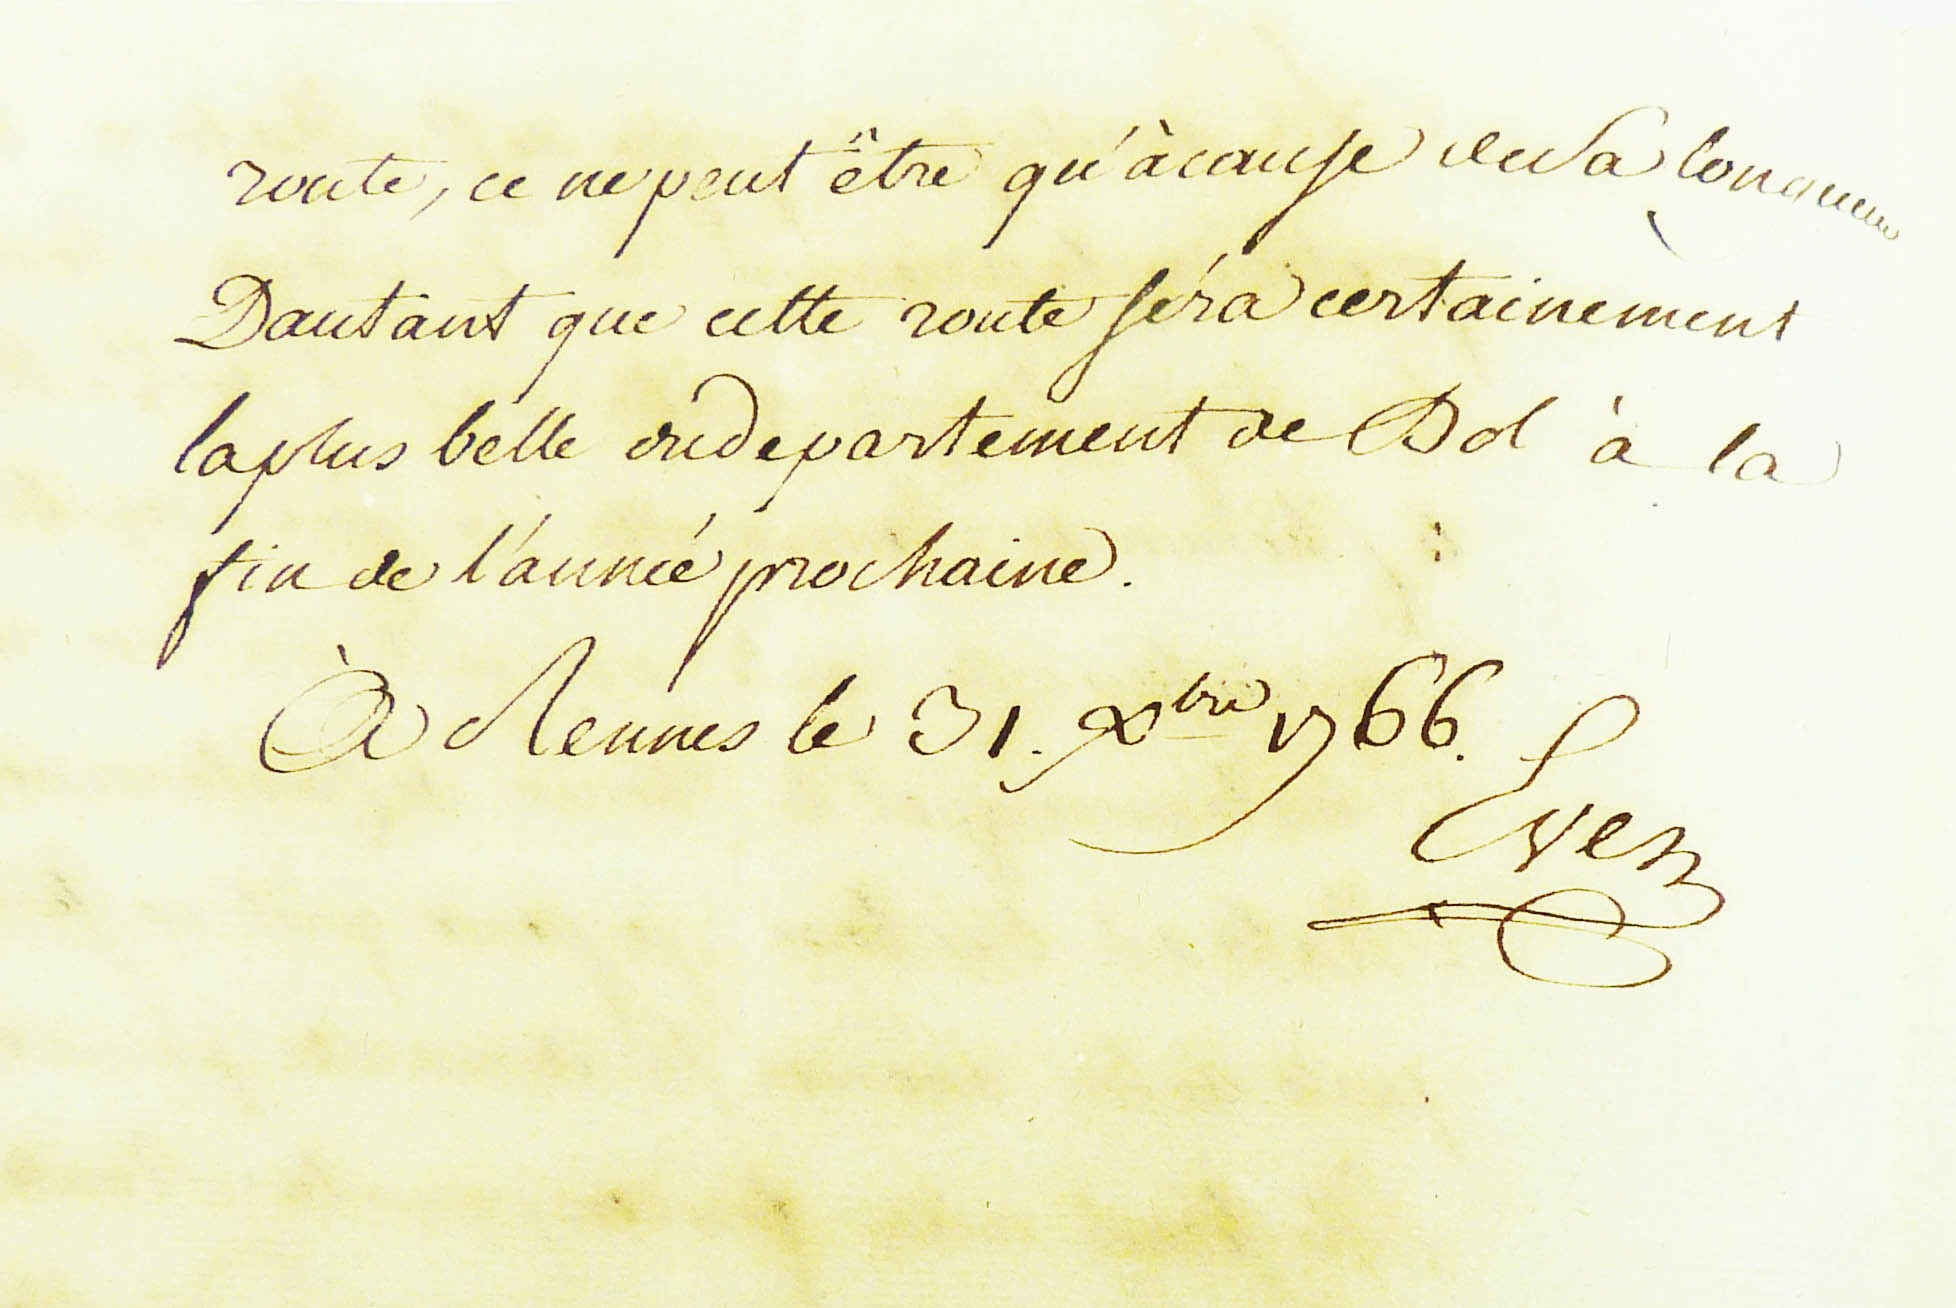 route, ce ne peut être qu'à cause de sa longueur
Dautant que cette route séra certainement
la plus belle du departement de Dol à la
fin de l'année prochaine.
À Rennes le 31. Xbre 1766.
Even